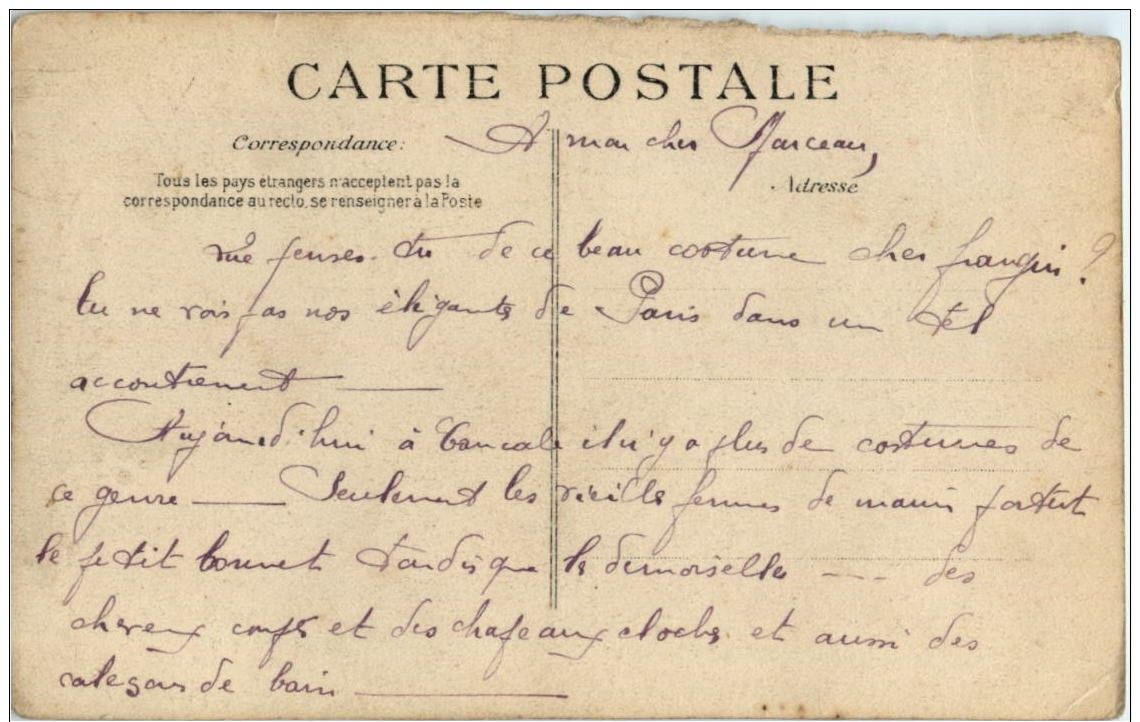 CARTE POSTALE
Correspondance:
A mon cher Marceau,
Tous les pays etrangers n'acceptent pas la
correspondance au recto, se renseigner à la Poste
Adresse
Que penses-tu de ce beau costume cher frangin ?
Tu ne vois pas nos élégantes de Paris dans un tel
accoutrement ———
Aujourd'hui à Cancale il n'y a plus de costumes de
ce genre ——— Seulement les vieilles femmes de marin portent
le petit bonnet tandis que les demoiselles --- des
cheveux coupés et des chapeaux cloches et aussi des
caleçons de bain ———